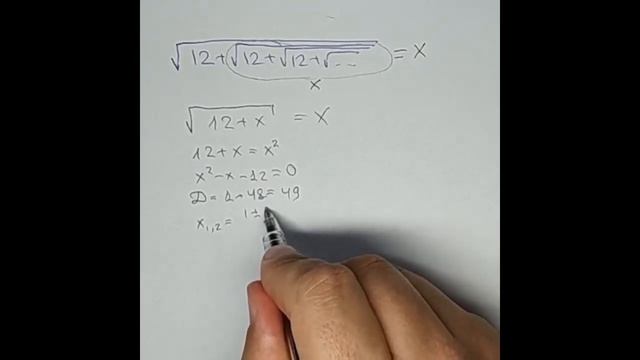 √12+√12+√12+√... = x
x
√12+x = x
12+x = x²
x²-x-12=0
D = 1+48 = 49
x₁,₂ = 1±